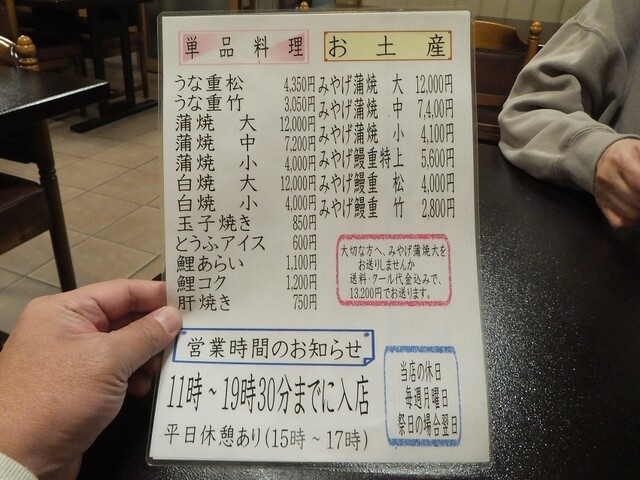 単品料理
うな重松 4,350円
うな重竹 3,050円
蒲焼 大 12,000円
蒲焼 中 7,200円
蒲焼 小 4,000円
白焼 大 12,000円
白焼 小 4,000円
玉子焼き 850円
とうふアイス 600円
鯉あらい 1,100円
鯉コク 1,200円
肝焼き 750円
お土産
みやげ蒲焼 大 12,000円
みやげ蒲焼 中 7,4,00円
みやげ蒲焼 小 4,100円
みやげ鰻重特上 5,600円
みやげ鰻重 松 4,000円
みやげ鰻重 竹 2,800円
大切な方へ、みやげ蒲焼大を
お送りしませんか
送料・クール代金込みで、
13,200円でお送ります。
営業時間のお知らせ
11時~19時30分までに入店
平日休憩あり(15時~17時)
当店の休日
毎週月曜日
祭日の場合翌日